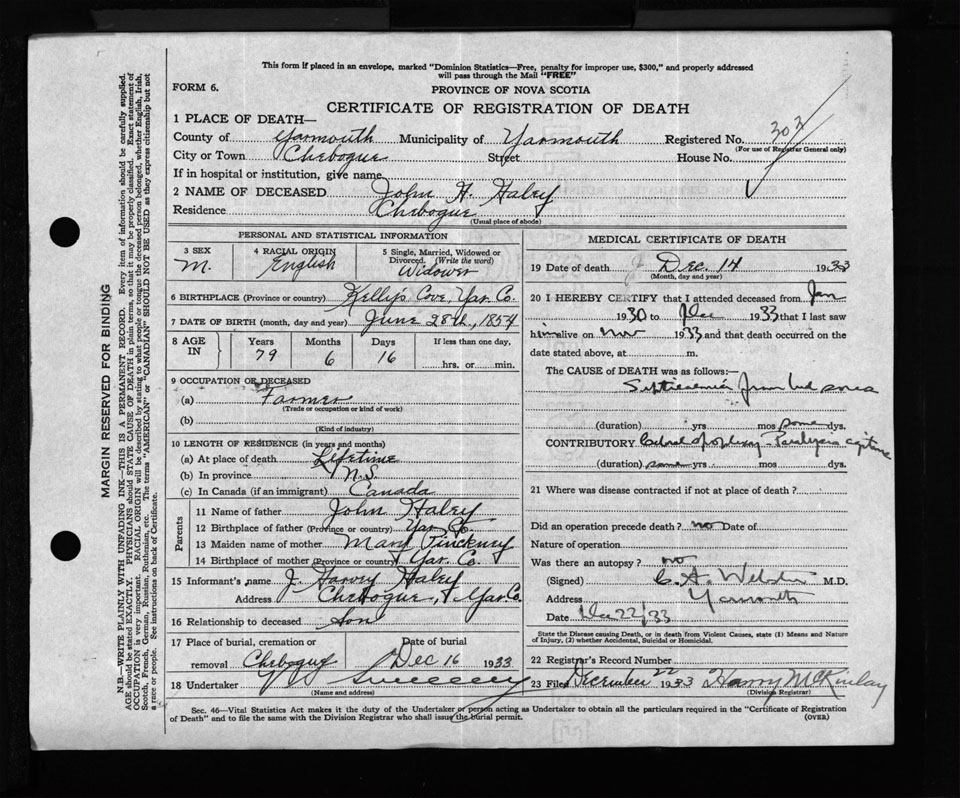 This form if placed in an envelope, marked "Dominion Statistics—Free, penalty for improper use, $300," and properly addressed
will pass through the Mail "FREE"
FORM 6.
PROVINCE OF NOVA SCOTIA
CERTIFICATE OF REGISTRATION OF DEATH
1 PLACE OF DEATH—
County of Yarmouth Municipality of Yarmouth Registered No. 303
(For use of Registrar General only)
City or Town Chebogue Street House No.
If in hospital or institution, give name
2 NAME OF DECEASED John H. Haley
Residence Chebogue
(Usual place of abode)
PERSONAL AND STATISTICAL INFORMATION
3 SEX M.
4 RACIAL ORIGIN English
5 Single, Married, Widowed or Divorced. (Write the word) Widower
6 BIRTHPLACE (Province or country) Kelly's Cove, Yar. Co.
7 DATE OF BIRTH (month, day and year) June 28th, 1854
8 AGE IN Years Months Days If less than one day,
79 6 16 hrs. or min.
9 OCCUPATION OF DECEASED
(a) Farmer
(Trade or occupation or kind of work)
(b)
(Kind of industry)
10 LENGTH OF RESIDENCE (in years and months)
(a) At place of death Lifetime
(b) In province N.S.
(c) In Canada (if an immigrant) Canada
Parents
11 Name of father John Haley
12 Birthplace of father (Province or country) Yar. Co.
13 Maiden name of mother Mary Pinckney
14 Birthplace of mother (Province or country) Yar. Co.
15 Informant's name J. Harvey Haley
Address Chebogue, Yar. Co.
16 Relationship to deceased Son
17 Place of burial, cremation or Date of burial
removal Chebogue Dec 16 1933
18 Undertaker
(Name and address)
MEDICAL CERTIFICATE OF DEATH
19 Date of death Dec. 14 1933
(Month, day and year)
20 I HEREBY CERTIFY that I attended deceased from Jan
1930 to Dec 1933 that I last saw
him alive on Nov 1933 and that death occurred on the
date stated above, at m.
The CAUSE OF DEATH was as follows:—
Septicaemia from bed sores
(duration) yrs. mos some dys.
CONTRIBUTORY Cerebral apoplexy - Paralysis agitans
(duration) some yrs. mos. dys.
21 Where was disease contracted if not at place of death?
Did an operation precede death? no Date of
Nature of operation
Was there an autopsy? no
(Signed) C. A. Webster M.D.
Address Yarmouth
Date Dec 22/33
State the Disease causing Death, or is death from Violent Causes, state (1) Means and Nature
of Injury, (2) whether Accidental, Suicidal or Homicidal.
22 Registrar's Record Number
23 Filed December 22 1933 Harry McKinlay
(Division Registrar)
Sec. 46—Vital Statistics Act makes it the duty of the Undertaker or person acting as Undertaker to obtain all the particulars required in the "Certificate of Registration
of Death" and to file the same with the Division Registrar who shall issue the burial permit. (OVER)
MARGIN RESERVED FOR BINDING
N.B.—WRITE PLAINLY WITH UNFADING INK—THIS IS A PERMANENT RECORD. Every item of information should be carefully supplied.
AGE should be stated EXACTLY. PHYSICIANS should STATE CAUSE OF DEATH in plain terms, so that it may be properly classified. Exact statement of
OCCUPATION is very important. RACIAL ORIGIN will be described by stating to what people or tongue the deceased person belonged, whether English, Irish,
Scotch, French, German, Russian, Ruthenian, etc. The terms "AMERICAN" or "CANADIAN" SHOULD NOT BE USED as they express citizenship but not
a race or people. See instructions on back of Certificate.